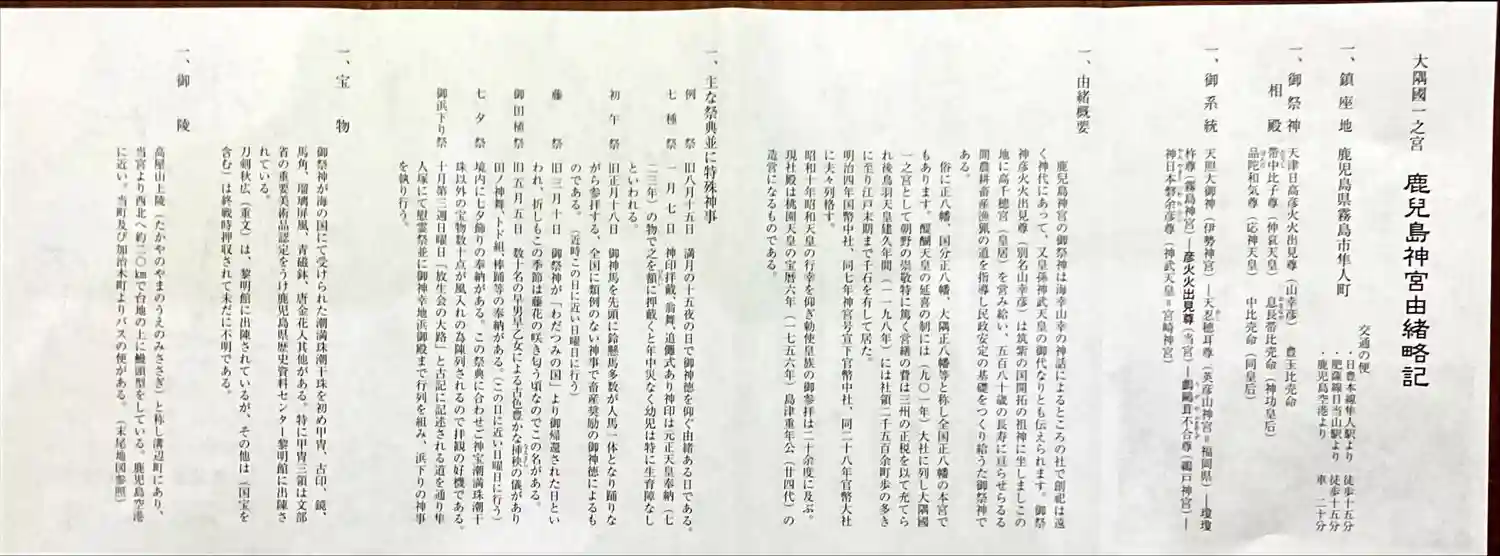 大隅國一之宮　鹿兒島神宮由緒略記
交通の便
・日豊本線隼人駅より　徒歩十五分
・肥薩線日当山駅より　徒歩十五分
・鹿児島空港より　車　二十分
一、鎮座地　鹿児島県霧島市隼人町
一、御祭神　天津日高彦火火出見尊（山幸彦）　豊玉比売命
相殿　帯中比子尊（仲哀天皇）　息長帯比売命（神功皇后）
品陀和気尊（応神天皇）　中比売命（同皇后）
一、御系統　天照大御神（伊勢神宮）―天忍穂耳尊（英彦山神宮＝福岡県）―瓊瓊
杵尊（霧島神宮）―彦火火出見尊（当宮）―鸕鷀葺不合尊（鵜戸神宮）―
神日本磐余彦尊（神武天皇＝宮崎神宮）
一、由緒概要
鹿児島神宮の御祭神は海幸山幸の神話によるところの社で創祀は遠
く神代にあって、又皇孫神武天皇の御代なりとも伝えられます。御祭
神彦火火出見尊（別名山幸彦）は筑紫の国開拓の祖神に坐しましこの
地に高千穂宮（皇居）を営み給い、五百八十歳の長寿に亘らせらるる
間農耕畜産漁猟の道を指導し民政安定の基礎をつくり給うた御祭神で
ある。
俗に正八幡、国分正八幡、大隅正八幡等と称し全国正八幡の本宮で
もあります。醍醐天皇の延喜の制には（九〇一年）大社に列し大隅國
一之宮として朝野の崇敬特に篤く営繕の費は三州の正税を以て充てら
れ後鳥羽天皇建久年間（一一九八年）には社領二千五百余町歩の多き
に至り江戸末期まで千石を有して居た。
明治四年国幣中社、同七年神宮号宣下官幣中社、同二十八年官幣大社
に夫々列格す。
昭和十年昭和天皇の行幸を仰ぎ勅使皇族の御参拝は二十余度に及ぶ。
現社殿は桃園天皇の宝暦六年（一七五六年）島津重年公（廿四代）の
造営になるものである。
一、主な祭典並に特殊神事
例祭　旧八月十五日　満月の十五夜の日で御神徳を仰ぐ由緒ある日である。
七種祭　一月七日　神印拝戴、翁舞、追儺式あり神印は元正天皇奉納（七
二三年）の物で之を額に押戴くと年中災なく幼児は特に生育障なし
といわれる。
初午祭　旧正月十八日　御神馬を先頭に鈴懸馬多数が人馬一体となり踊りな
がら参拝する、全国に類例のない神事で畜産奨励の御神徳によるも
のである。（近時この日に近い日曜日に行う）
藤祭　旧三月十日　御祭神が「わだつみの国」より御帰還された日とい
われ、折しもこの季節は藤花の咲き匂う頃なのでこの名がある。
御田植祭　旧五月五日　数十名の早男早乙女による古色豊かな挿秧の儀があり
田ノ神舞、トド組、棒踊等の奉納がある。（この日に近い日曜日に行う）
七夕祭　境内に七夕飾りの奉納がある。この祭典に合わせご神宝潮満珠潮干
珠以外の宝物数十点が風入れの為陳列されるので拝観の好機である。
御浜下り祭　十月第三週日曜日「放生会の大路」と古記に記述される道を通り隼
人塚にて慰霊祭並に御神幸地浜御殿まで行列を組み、浜下りの神事
を執り行う。
一、宝物
御祭神が海の国にて受けられた潮満珠潮干珠を初め甲冑、古印、鏡、
馬角、瑠璃屏風、青磁鉢、唐金花人其他がある。特に甲冑三領は文部
省の重要美術品認定をうけ鹿児島県歴史資料センター黎明館に出陳さ
れている。
刀剣秋広（重文）は、黎明館に出陳されているが、その他は（国宝を
含む）は終戦時押収されて未だに不明である。
一、御陵
高屋山上陵（たかやのやまのうえのみささぎ）と称し溝辺町にあり、
当宮より西北へ約二〇㎞で台地の上に鰻頭型をしている。鹿児島空港
に近い。当町及び加治木町よりバスの便がある。（末尾地図参照）